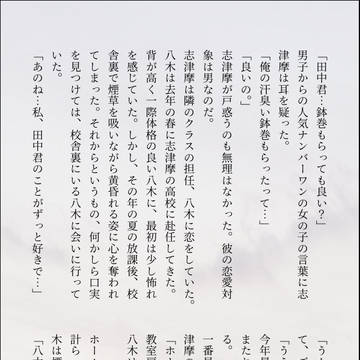 「田中君…鉢巻もらっても良い？」
男子からの人気ナンバーワンの女の子の言葉に志
津摩は耳を疑った。
「俺の汗臭い鉢巻もらったって…」
「良いの。」
志津摩が戸惑うのも無理はなかった。彼の恋愛対
象は男なのだ。
志津摩は隣のクラスの担任、八木に恋をしていた。
八木は去年の春に志津摩の高校に赴任してきた。
背が高く一際体格の良い八木に、最初は少し怖れ
を感じていた。しかし、その年の夏の放課後、校
舎裏で煙草を吸いながら黄昏れる姿に心を奪われ
てしまった。それからというもの、何かしら口実
を見つけては、校舎裏にいる八木に会いに行って
いた。
「あのね…私、田中君のことがずっと好きで…」
「う
て、
「う
今年
また
る。
一番
津摩
「ホ
教室
八木
ホー
木は
計ら
「八